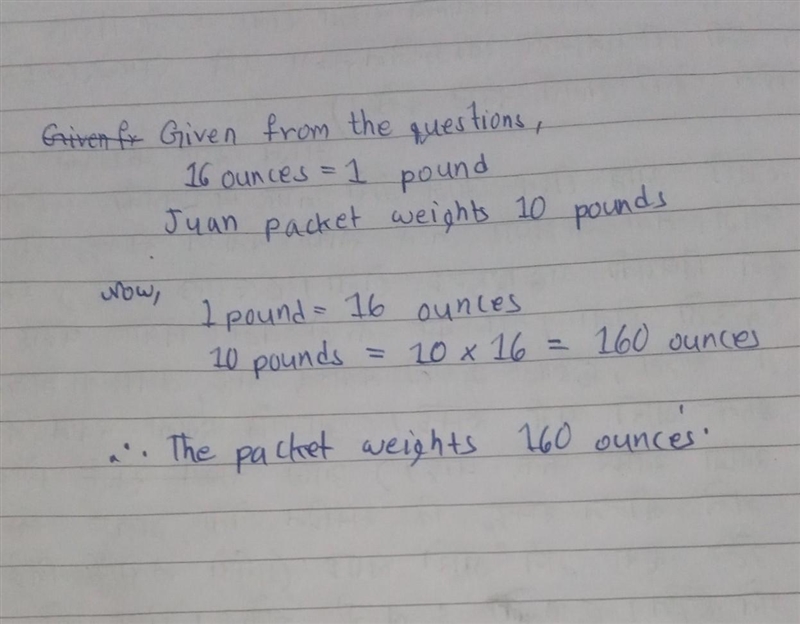 Given fr Given from the questions,
16 ounces = 1 pound
Juan packet weights 10 pounds
Now,
1 pound = 16 ounces
10 pounds = 10 × 16 = 160 ounces
∴ The packet weights 160 ounces.